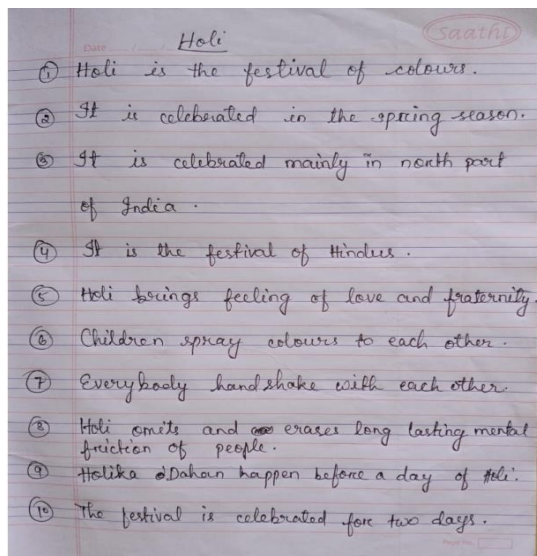 saathi
Date ...../...../.....
Holi
① Holi is the festival of colours.
② It is celebrated in the spring season.
③ It is celebrated mainly in north part
of India.
④ It is the festival of Hindus.
⑤ Holi brings feeling of love and fraternity.
⑥ Children spray colours to each other.
⑦ Everybody handshake with each other.
⑧ Holi omits and erases long lasting mental
friction of people.
⑨ Holika Dahan happen before a day of Holi.
⑩ The festival is celebrated for two days.
Page No.